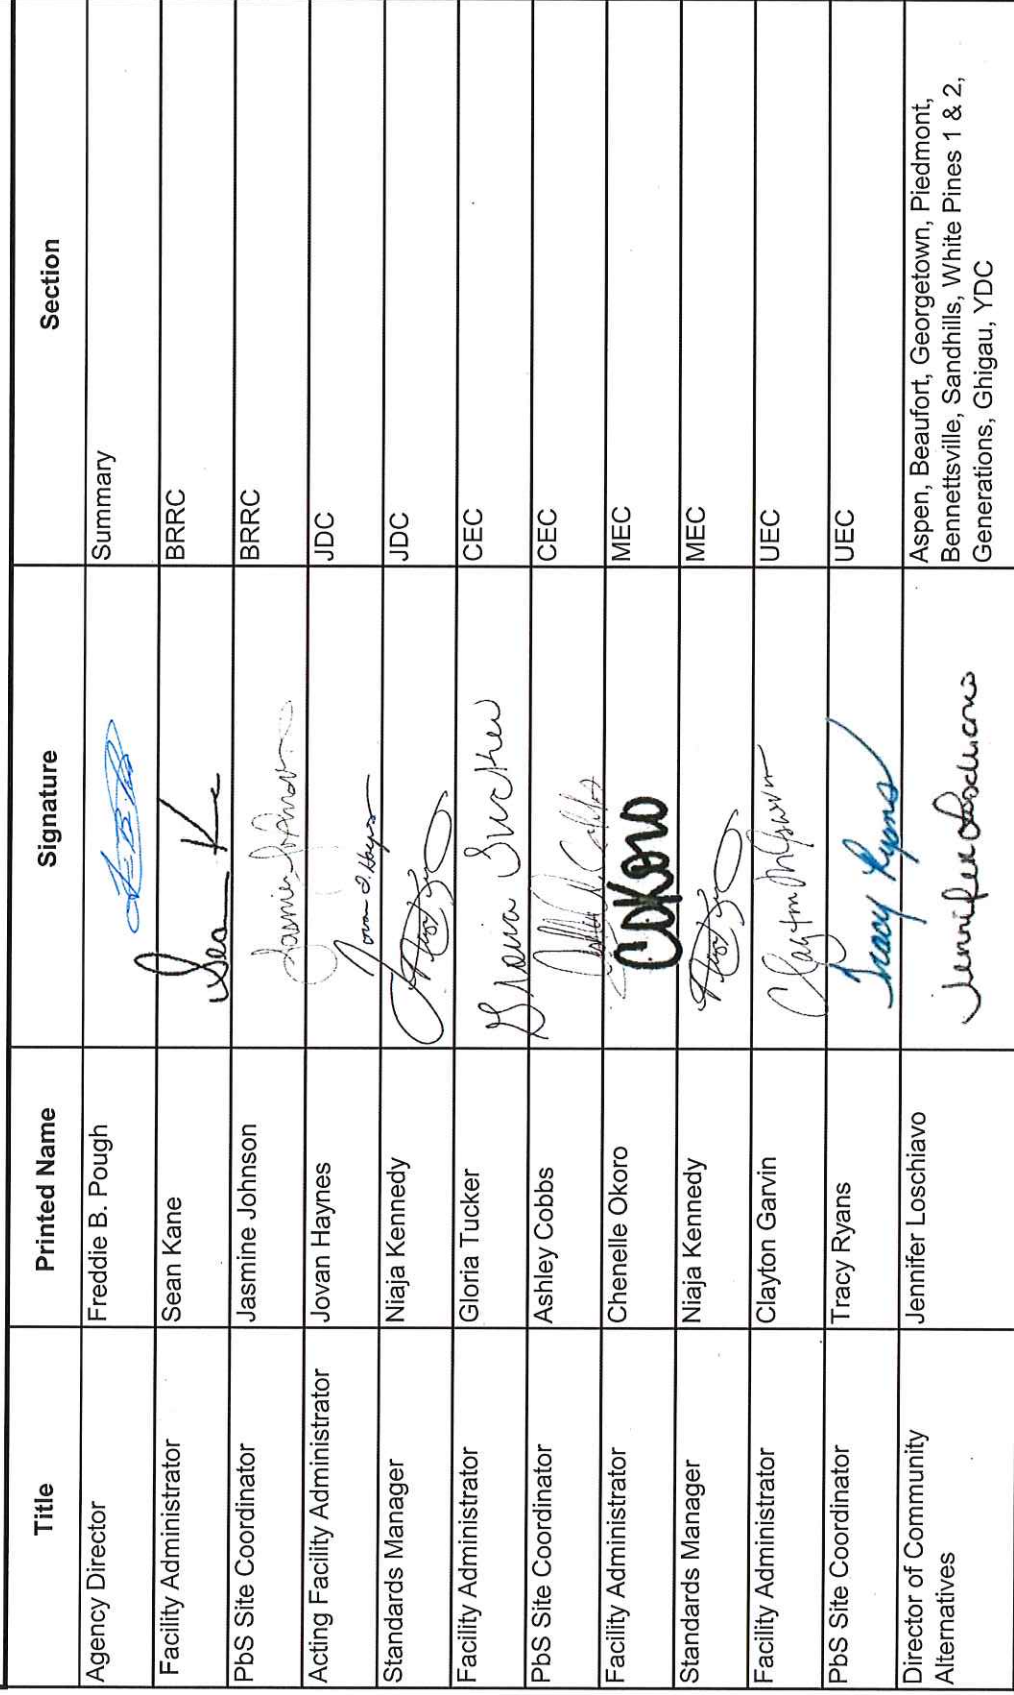 Title Printed Name Signature Section
Agency Director Freddie B. Pough Summary
Facility Administrator Sean Kane Sean K BRRC
PbS Site Coordinator Jasmine Johnson Jasmine Johnson BRRC
Acting Facility Administrator Jovan Haynes Jovan Haynes JDC
Standards Manager Niaja Kennedy JDC
Facility Administrator Gloria Tucker Gloria Tucker CEC
PbS Site Coordinator Ashley Cobbs CEC
Facility Administrator Chenelle Okoro COkoro MEC
Standards Manager Niaja Kennedy MEC
Facility Administrator Clayton Garvin Clayton M Garvin UEC
PbS Site Coordinator Tracy Ryans Tracy Ryans UEC
Director of Community
Alternatives
Jennifer Loschiavo Jennifer Loschiavo
Aspen, Beaufort, Georgetown, Piedmont,
Bennettsville, Sandhills, White Pines 1 & 2,
Generations, Ghigau, YDC